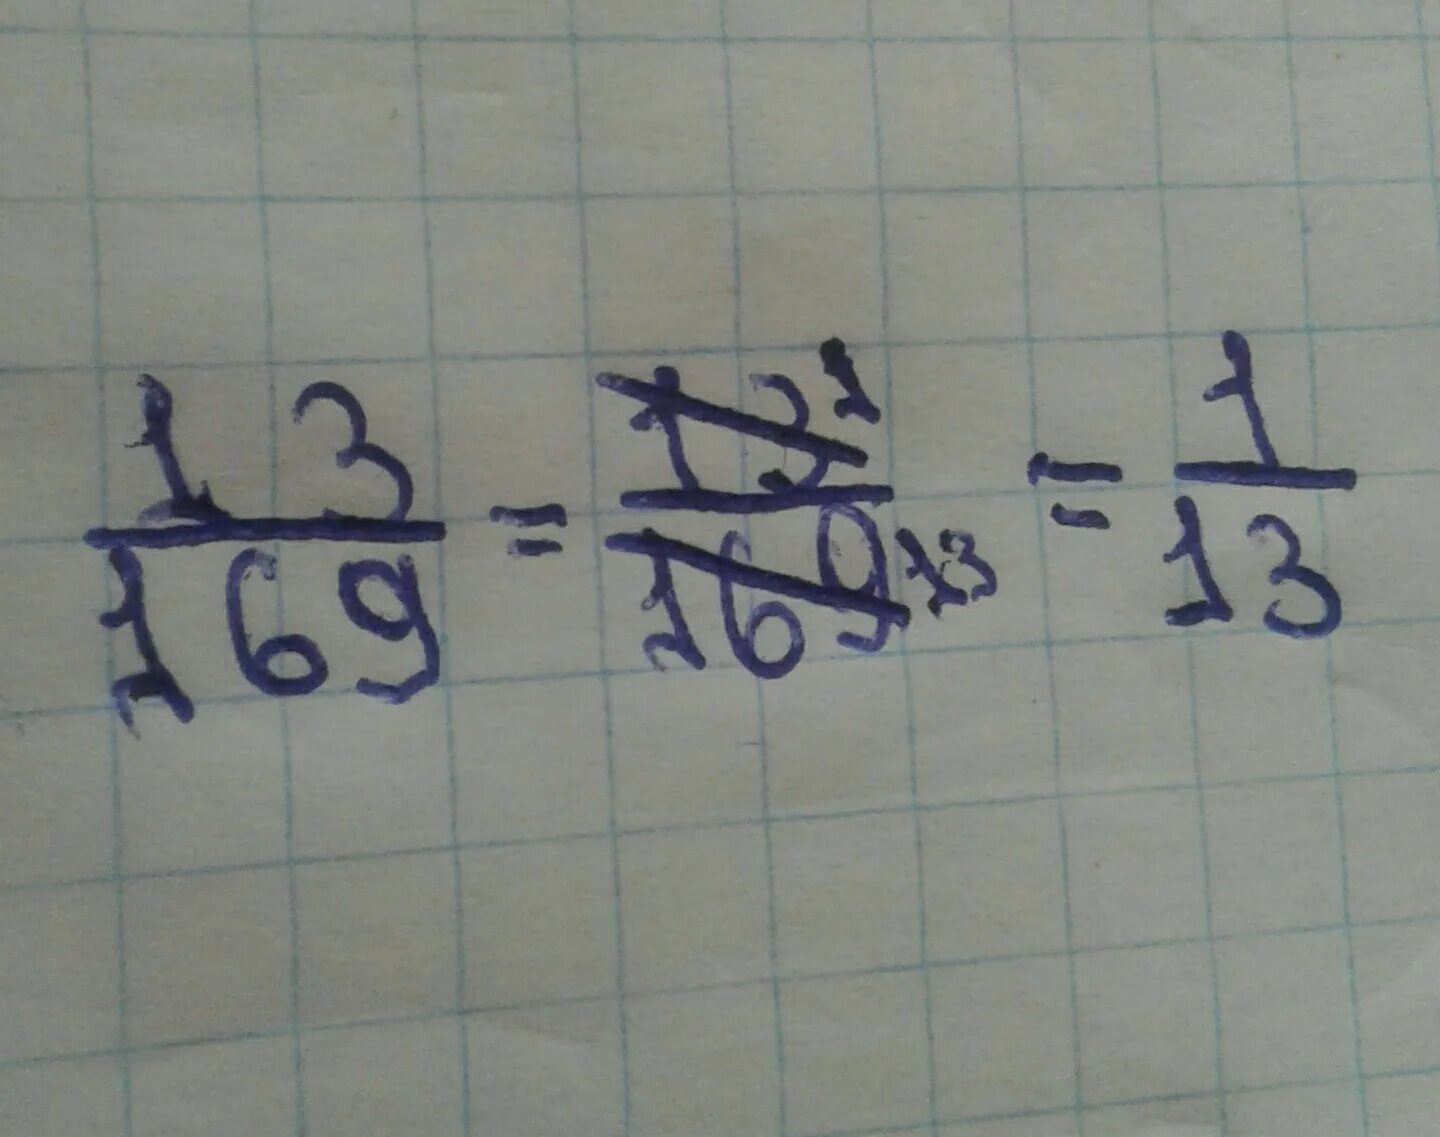 13/169 = 13 1/169 13 = 1/13